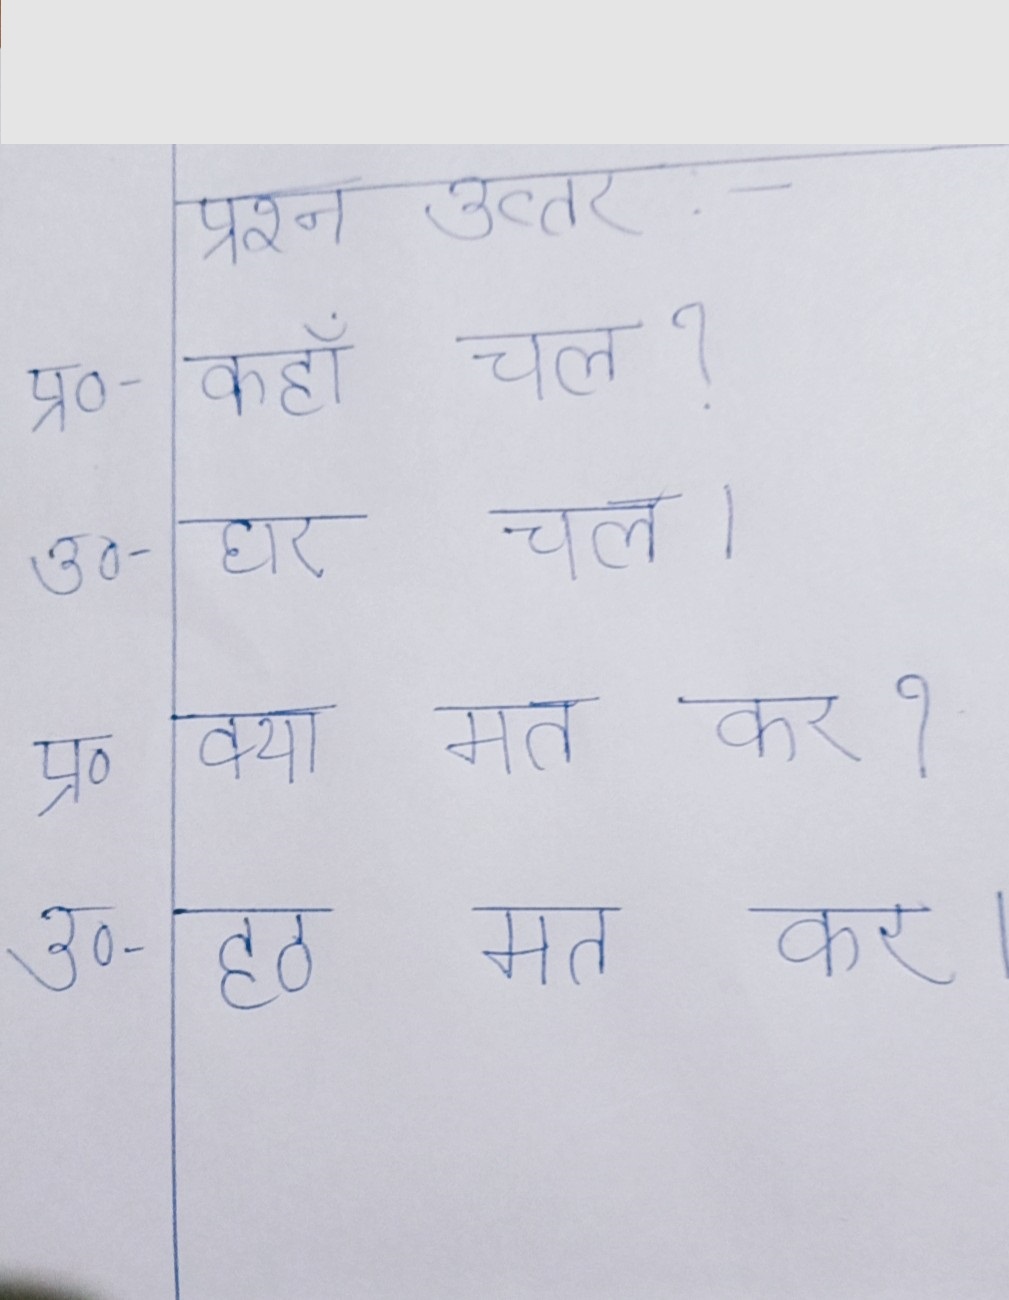 प्रश्न उत्तर :-
प्र०- कहाँ चल ?
उ०- घर चल ।
प्र० क्या मत कर ?
उ०- हठ मत कर ।